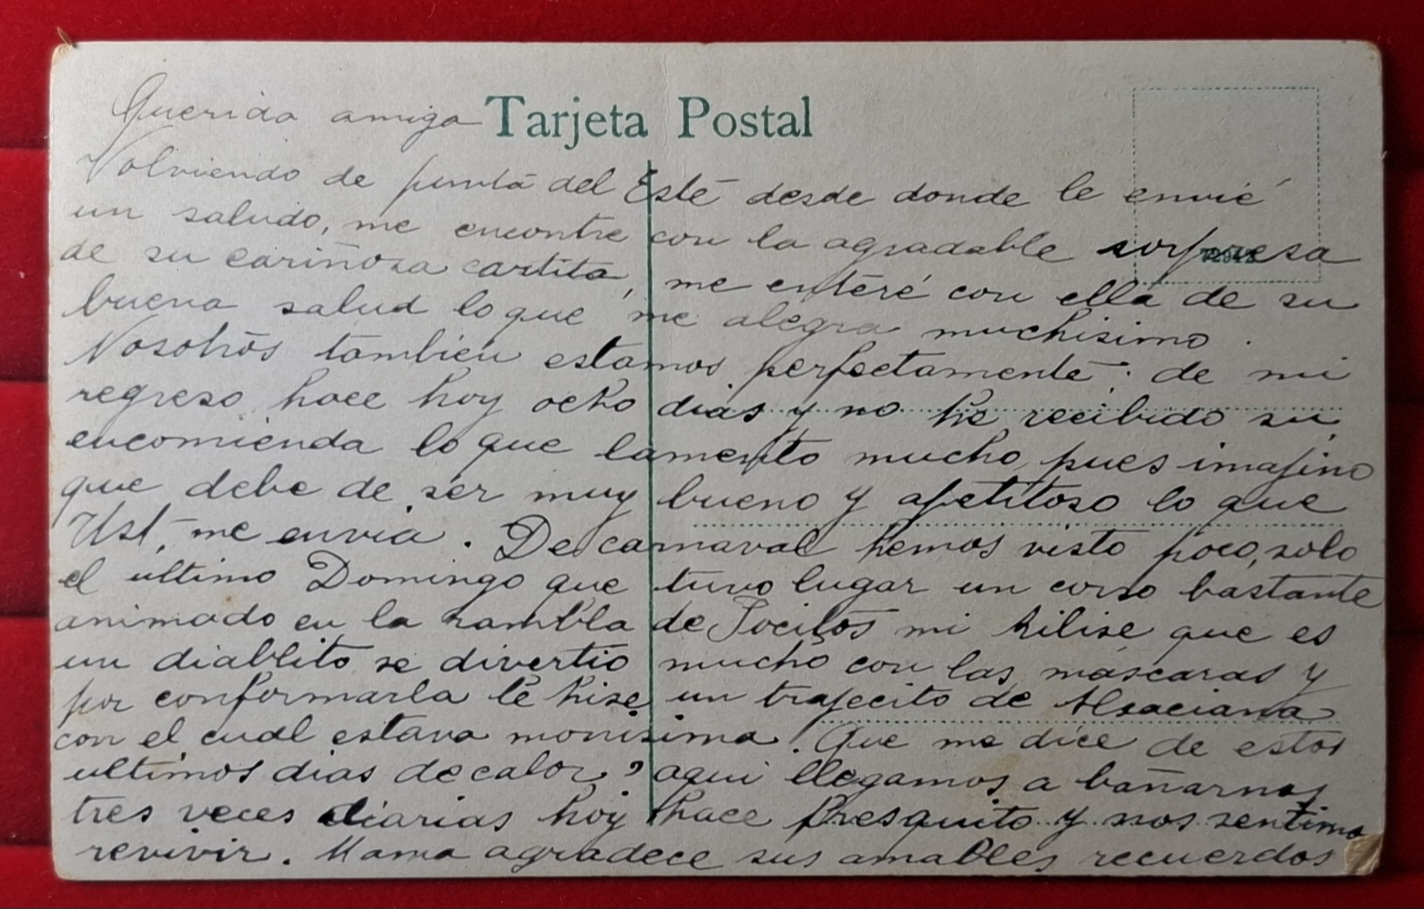 Tarjeta Postal
Querida amiga
Volviendo de punta del Este desde donde le envié
un saludo, me encontre con la agradable sorpresa
de su cariñoza cartita, me enteré con ella de su
buena salud lo que me alegra muchisimo.
Nosotros tambien estamos perfectamente; de mi
regreso hace hoy ocho dias y no he recibido su
encomienda lo que lamento mucho, pues imagino
que debe de ser muy bueno y apetitoso lo que
Ust, me envia. De carnaval hemos visto poco, solo
el ultimo Domingo que tuvo lugar un corso bastante
animado en la rambla de Pocitos mi hilise que es
un diablito se divertió mucho con las mascaras y
por conformarla le hise un trajecito de Alsaciana
con el cual estava monisima. Que me dice de estos
ultimos dias de calor? aqui llegamos a bañarnos
tres veces diarias hoy hace fresquito y nos sentimo
revivir. Mama agradece sus amables recuerdos